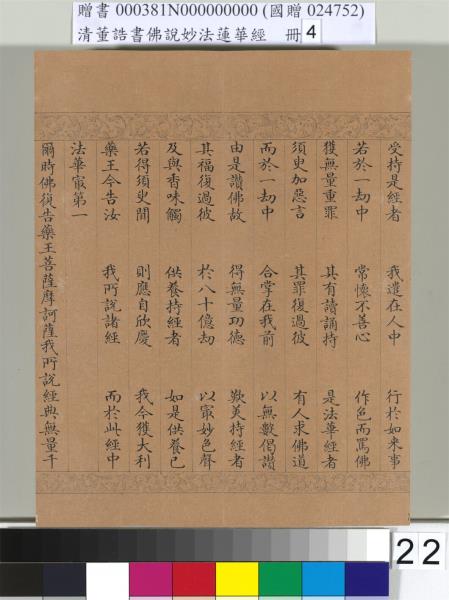 贈書 000381N000000000 (國贈 024752)
清董誥書佛說妙法蓮華經 冊 4
受持是經者 我遣在人中 行於如来事
若於一劫中 常懷不善心 作色而罵佛
獲無量重罪 其有讀誦持 是法華經者
須臾加惡言 其罪復過彼 有人求佛道
而於一劫中 合掌在我前 以無數偈讚
由是讚佛故 得無量功德 歎美持經者
其福復過彼 於八十億劫 以冣妙色聲
及與香味觸 供養持經者 如是供養已
若得須臾聞 則應自欣慶 我今獲大利
藥王今告汝 我所說諸經 而於此經中
法華冣第一
爾時佛復告藥王菩薩摩訶薩我所說經典無量千
22